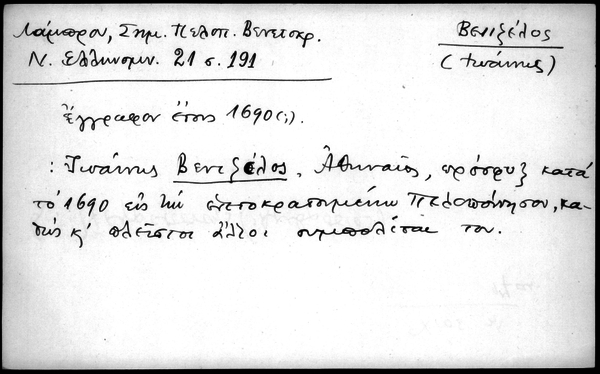 Λάμπρου, Σημ. Πελοπ. Βενετοκρ.
Ν. Ελληνομν. 21 σ. 191
Βενιζέλος
(Ἰωάννης)
Ἔγγραφον ἔτους 1690 (;).
: Ἰωάννης Βενιζέλος, Ἀθηναῖος, πρόσφυξ κατά
τό 1690 εἰς τήν ἑνετοκρατουμένην Πελοπόννησον, κα-
θώς κ' πλεῖστοι ἄλλοι συμπολῖται του.